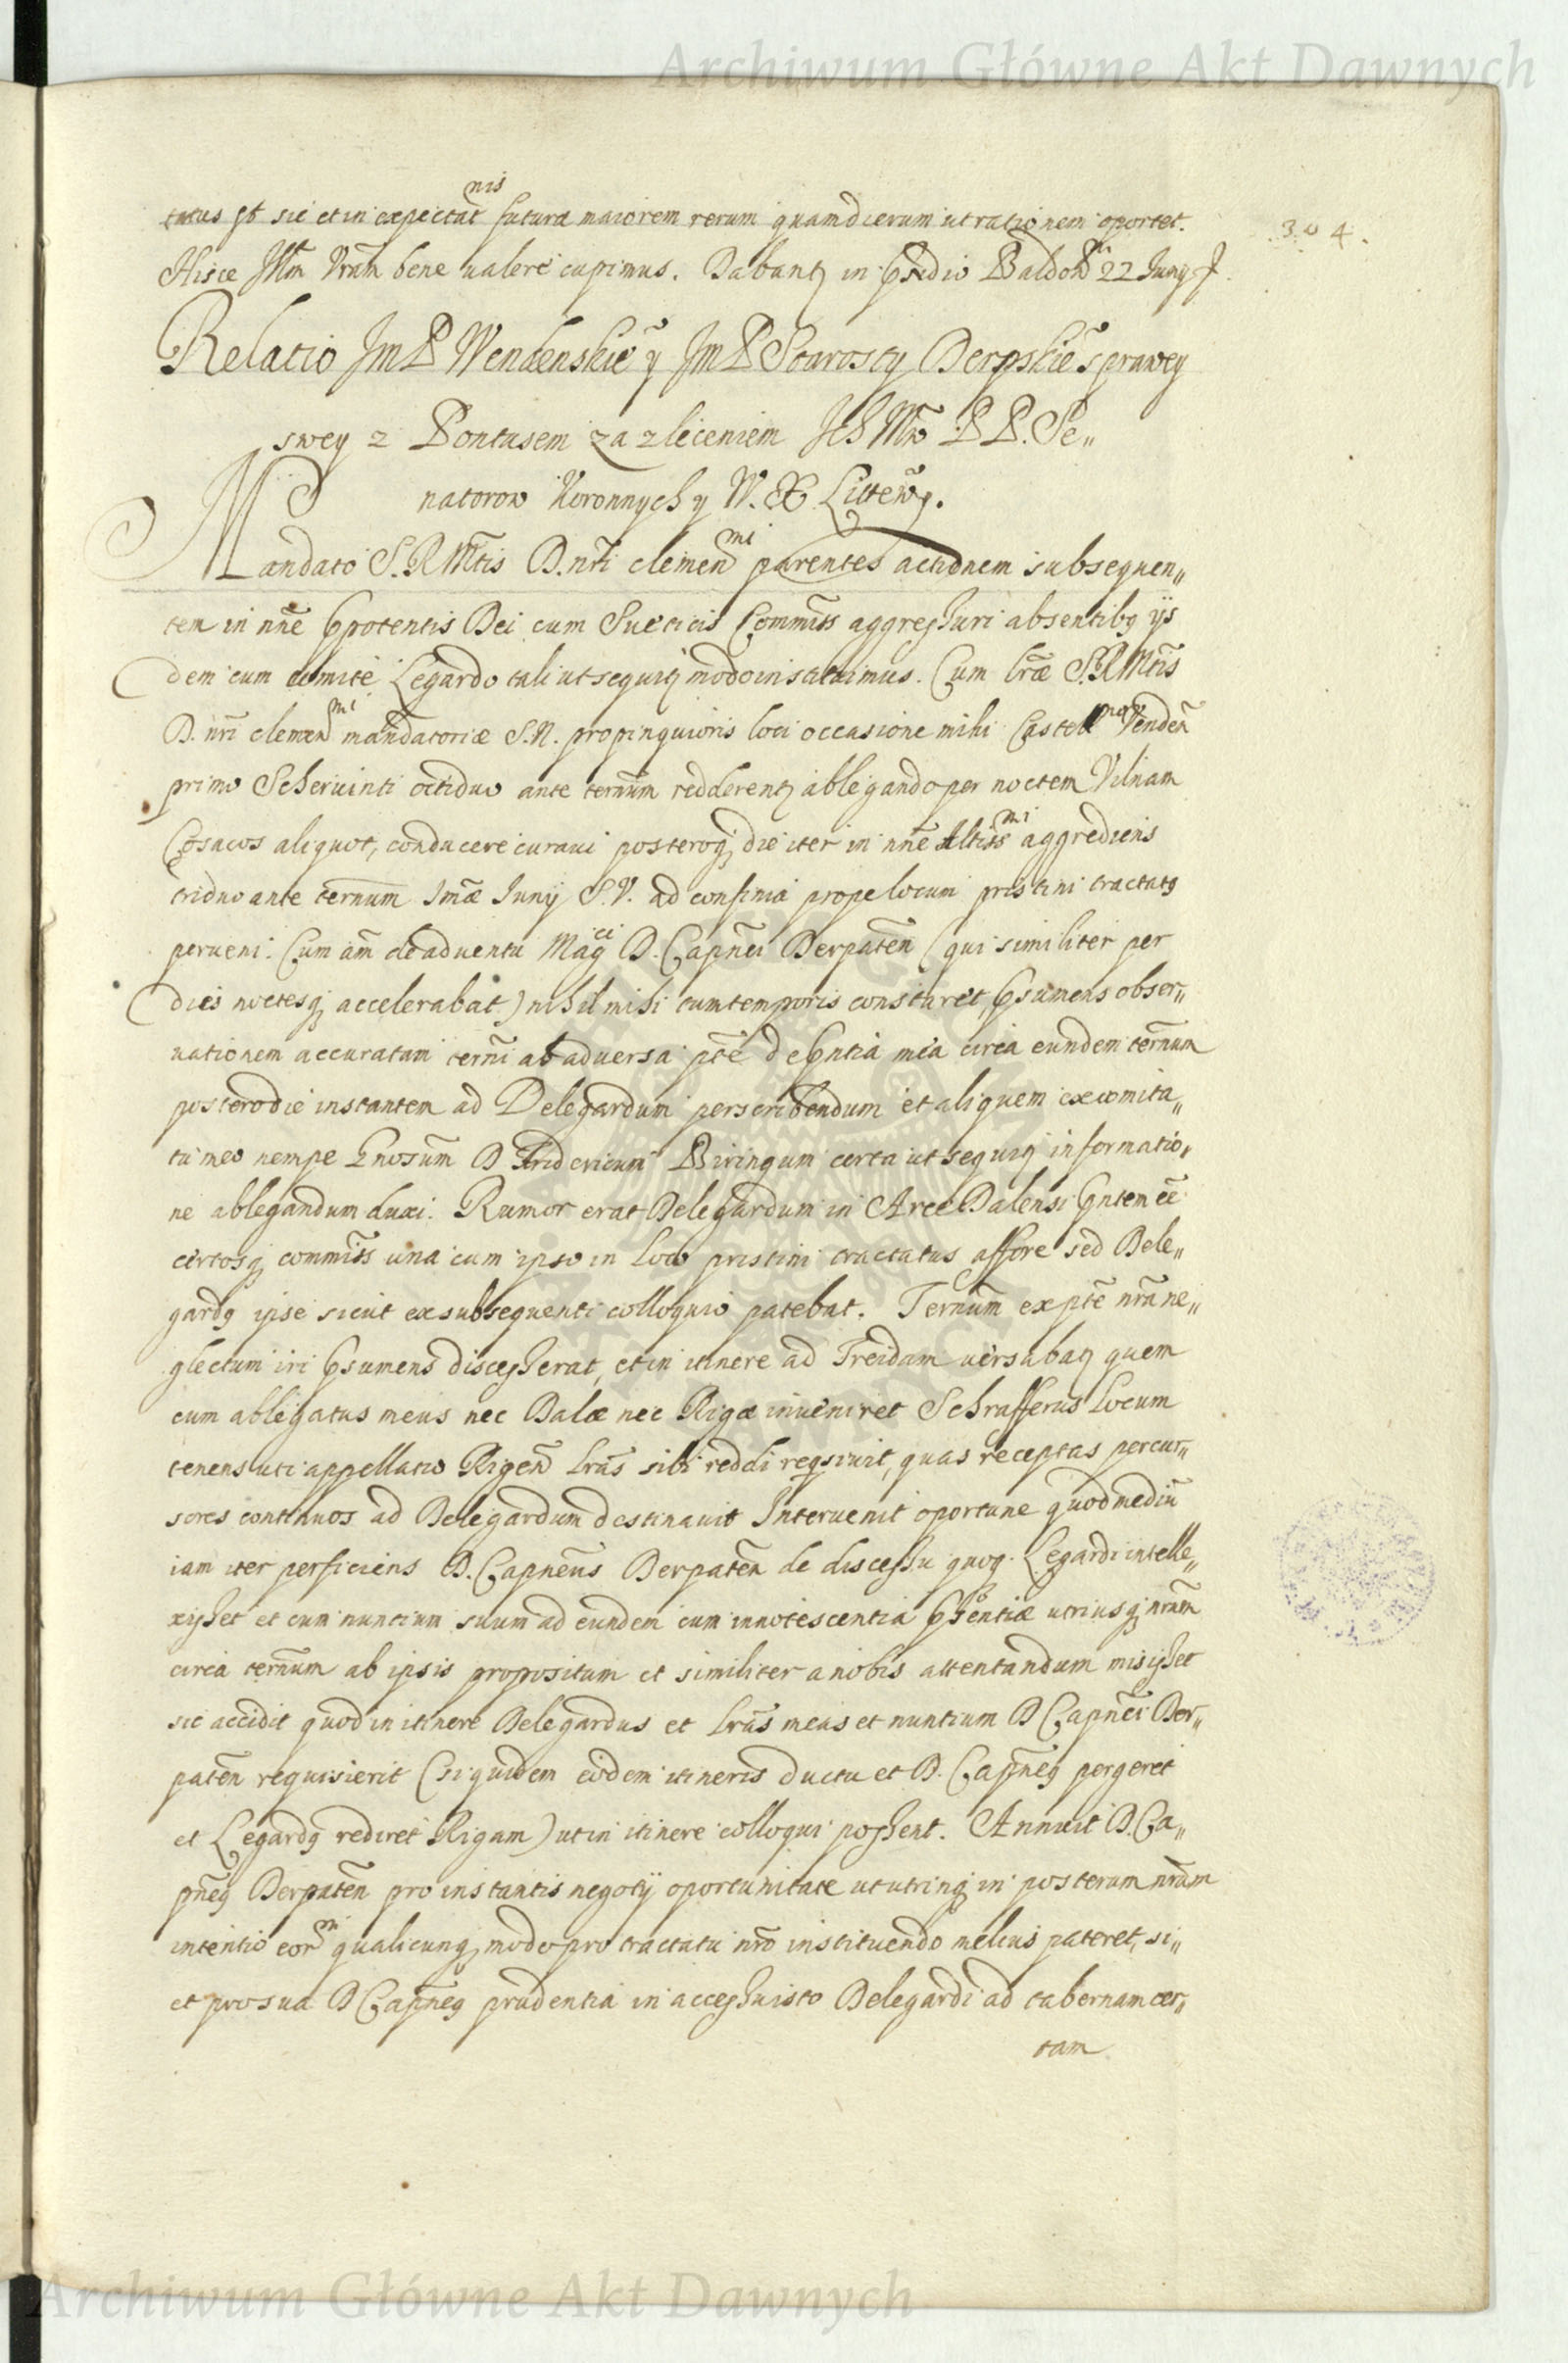 Archiwum Główne Akt Dawnych
304.
tatus st sic et in expectat nis futura maiorem rerum quam dierum ut rationem oportet.
Hisce Illm Vram bene valere cupimus. Dabant in Baldon 22 Juny
Relatio Jm P Wendenskie y Jm P Starosty Derpskie sprawy
swey z Pontusem za zleceniem Ich Mw P P. Se„
natorow Koronnych y W. X. Littew.
Mandato S. R Mtis D. nri clemen mi parentes actionem subsequen„
tem in nne Opotentis Dei cum Sueticis Commiss aggressuri absentibq ijs
dem cum comite Legardo tali ut sequitq modo instituimus. Cum lræ S. R Mtis
D. nri clemen mi mandatoriæ S. N. propinquioris loci occasione mihi Castell Venden
primo Scheruinti octiduo ante ternum redderentq ablegando per noctem Vilnam
Cosacos aliquot, conducere curaui posteroq die iter in nne Altiss mi aggrediens
triduo ante ternum Imæ Juny S. V. ad confinia prope locum pristini tractatq
perueni. Cum am de aduentu Mag ci D. Capnei Derpaten (qui similiter per
dies noctesq accelerabat) nihil mihi cum temporis constaret, Psumens obser„
uationem accuratam terni ab aduersa pte de Pntia mea circa eundem ternum
postero die instantem ad Delegardum perscribendum et aliquem ex comita„
tu meo nempe Gnosum D Fridericum Biringum certa ut sequitq informatio„
ne ablegandum duxi. Rumor erat Delegardum in Arce Dalensi Pntem ee
certosq commiss una cum ipso in loco pristini tractatus affore sed Dele„
gardq ipse sicut ex subsequenti colloquio patebat. Ternum ex pte nra ne„
glectum iri Psumens discesserat, et in itinere ad Treidam uersabatq quem
cum ablegatus meus nec Dalæ nec Rigæ inueniret Schrafferus locum
tenens uti appellatio Rigen lras sibi reddi reqsiuit, quas receptas percur„
sores continuos ad Delegardum destinauit Interuenit oportune quod mediu
iam iter perficiens D. Capneus Derpaten de discessu quoq Legardi intelle„
xisset et cum nuntium suum ad eundem cum innotescentia Psentiæ utriusq nrum
circa ternum ab ipsis propositum et similiter a nobis attentandum misisset
sic accidit quod in itinere Delegardus et lras meas et nuntium D Capnei Der„
paten requisierit (siquidem eodem itineris ductu et D. Capneq pergeret
et Legardq rediret Rigam) ut in itinere colloqui possent. Annuit D. Ca„
pneq Derpaten pro instantis negotij oportunitate ut utrinq in posterum nram
intentio eor m qualicunq modo pro tractatu nro instituendo melius pateret, si„
et pro sua D Capneq prudentia in accessu isto Delegardi ad tabernam cer„
tam
Archiwum Główne Akt Dawnych